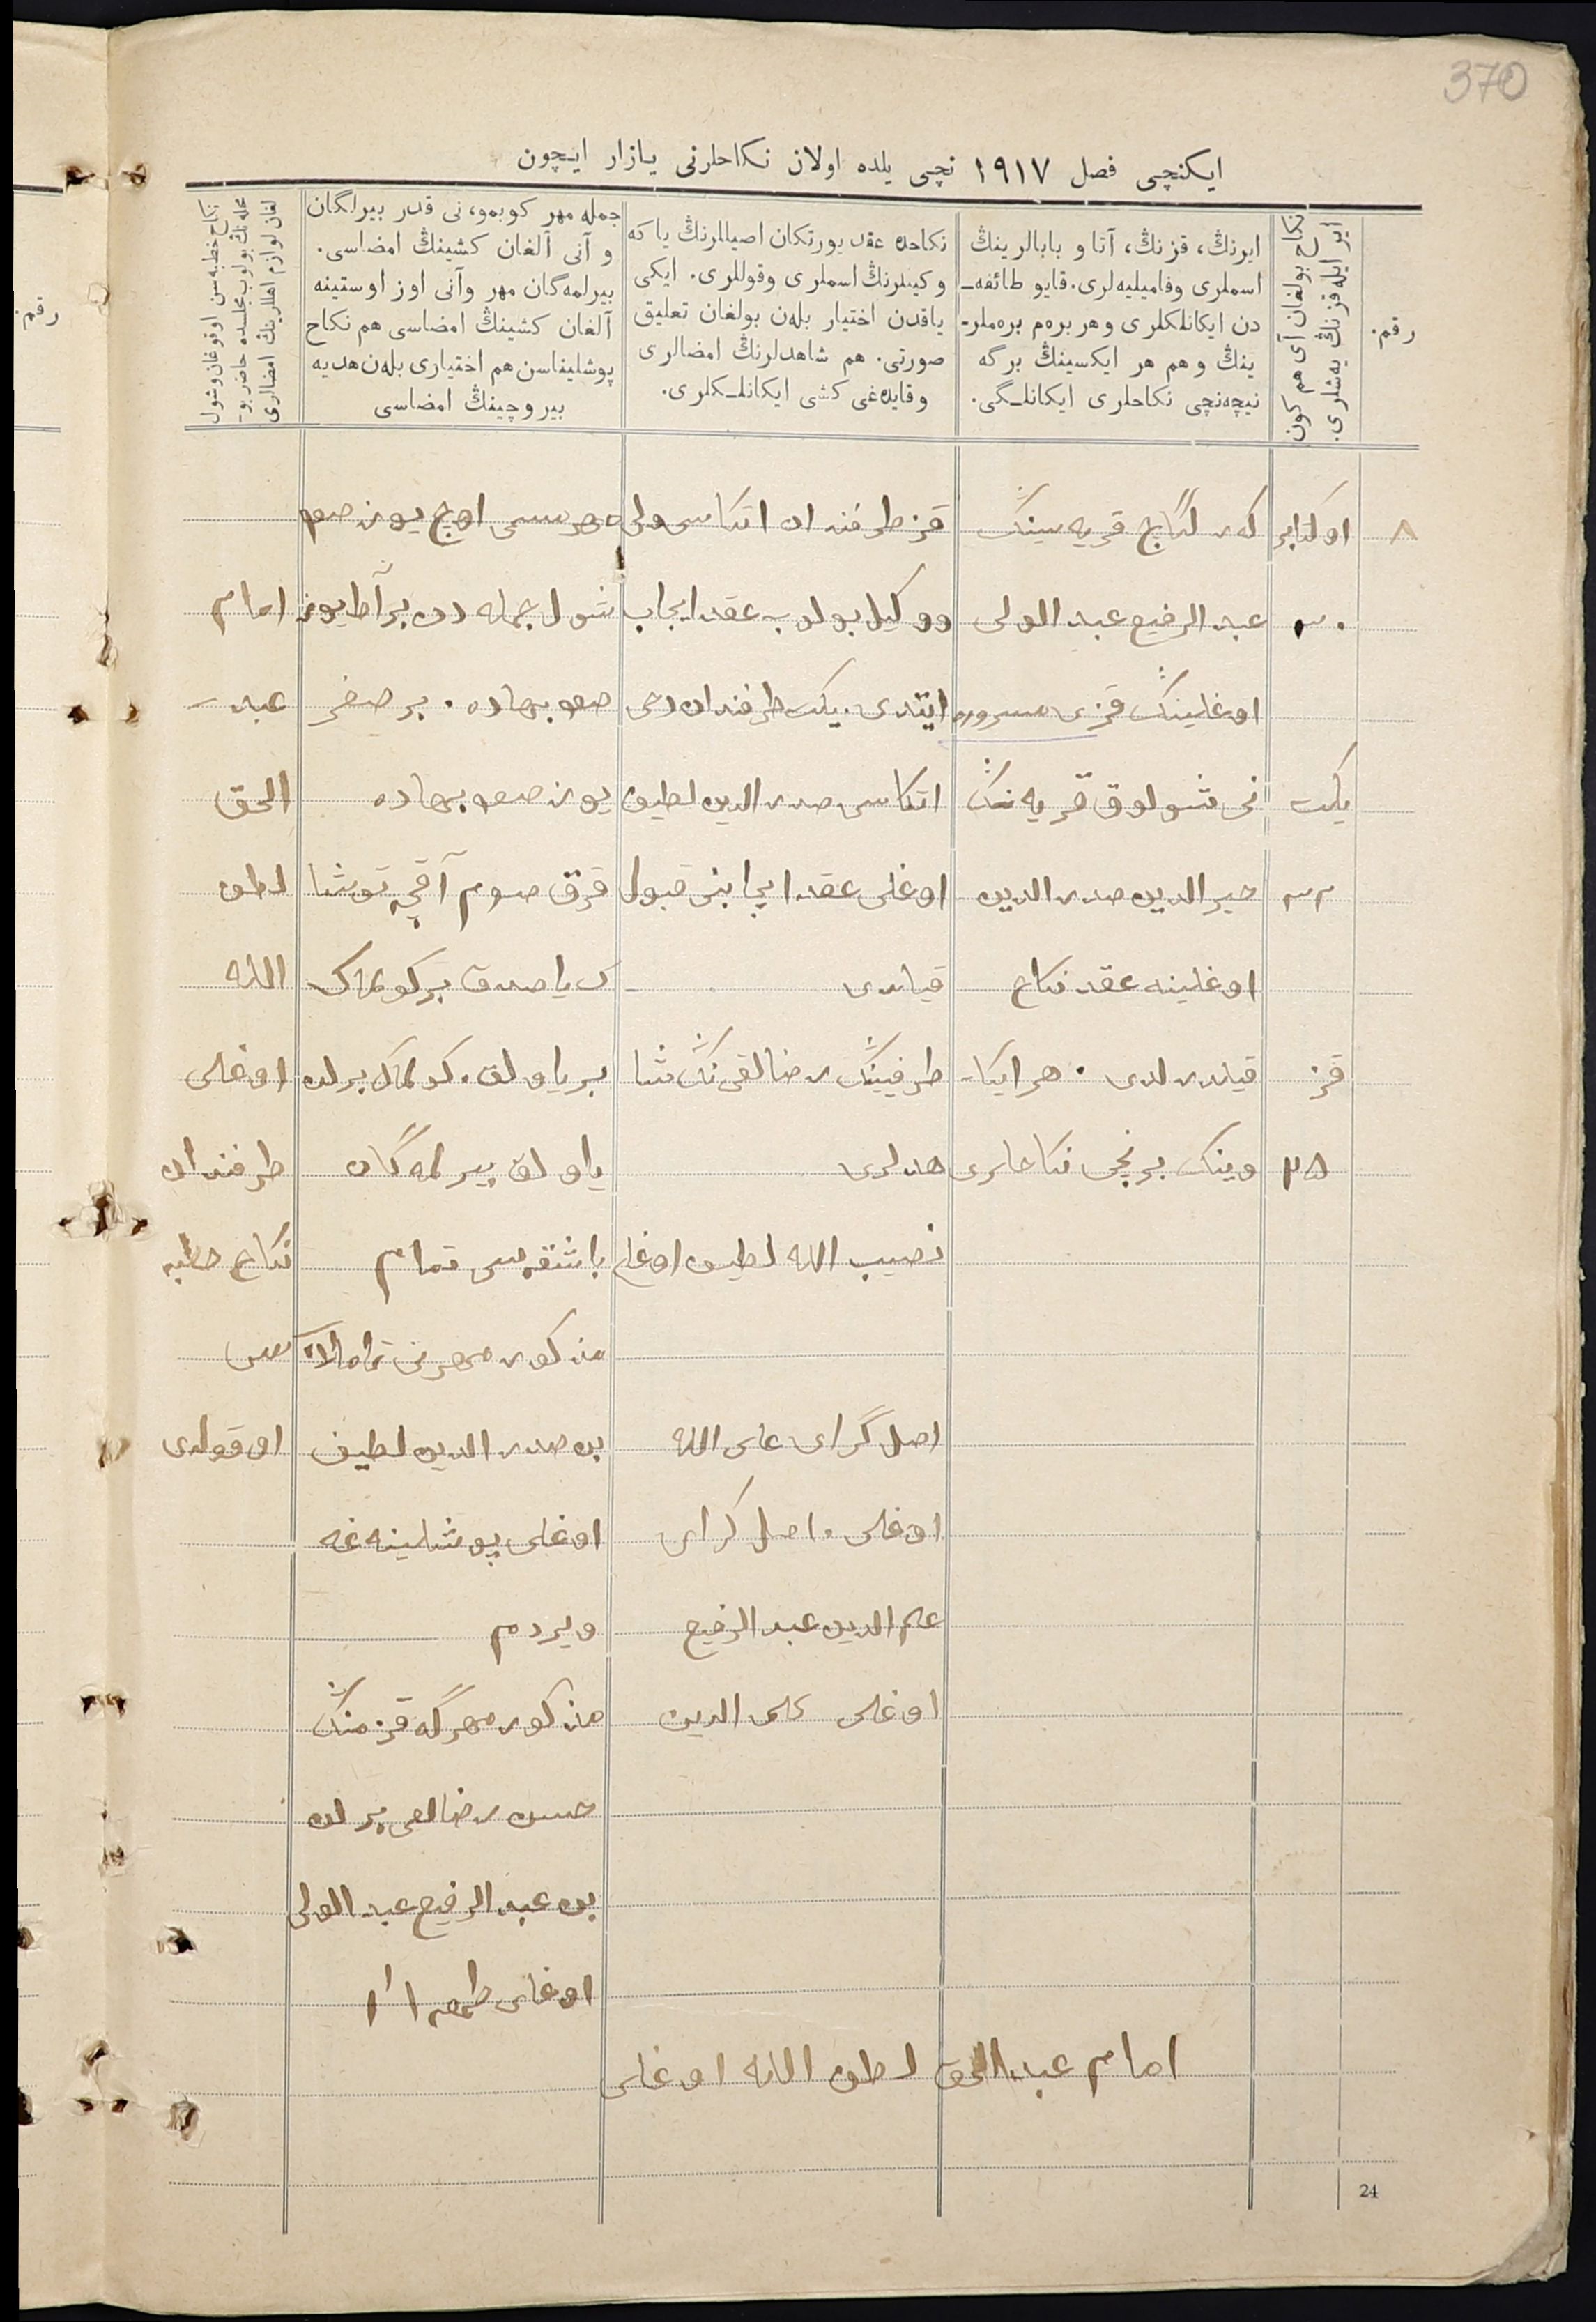 370
ایکنچی فصل ۱۹۱۷ نچی یلده اولان نکاحلرنی یازار ایچون
رقم.
نکاح بولغان آی هم کون
ایر ایله قزنڭ یه‌شلری.
ایرنڭ، قزنڭ، آتا و بابالرینڭ
اسملری وفامیلیه‌لری. قایو طائفه‌ـ
دن ایکانلکلری و هر بره‌م بره‌ملرـ
ینڭ و هم هر ایکسینڭ برگه
نیچه‌نچی نکاحلری ایکانلـگی.
نکاحده عقد یورتکان اصیللرنڭ یا که
وکیللرنڭ اسملری وقوللری. ایکی
یاقدن اختیار بله‌ن بولغان تعلیق
صورتی. هم شاهدلرنڭ امضالری
وقایده‌غی کشی ایکانلـکلری.
جمله مهر کوبمو، نی قدر بیرلگان
و آنی آلغان کشینڭ امضاسی.
بیرلمه‌گان مهر وآنی اوز اوستینه
آلغان کشینڭ امضاسی هم نکاح
پوشلیناسن هم اختیاری بله‌ن هدیه
بیروچینڭ امضاسی
نکاح خطبه‌سن اوقوغان وشول
محله‌نڭ بولوب مجلسده حاضر بوـ
لغان لوازم اهللرینڭ امضالری
رقم.
۸
اوکتابر
۳۰
یکت
۳۲
قز
۲۵
قریه سینڭ
عبد الرفیع عبد الولی
اوغلینڭ قزی مسروره
نی شولوق قریه نڭ
خیر الدین صدر الدین
اوغلینه عقد نکاح
قیلدرلدی. هر ایکا
وینڭ برنچی نکاحلری
قز طرفندان اتکاسی ولی
و وکیل بولوب عقد ایجاب
ایتدی. یکت طرفندان دخی
اتکاسی صدر الدین لطیف
اوغلی عقد ایجابنی قبول
قیلدی
طرفینڭ رضالقی نڭ شا
هدلری
نصیب الله لطیف اوغلی
اصل گرای علی الله
اوغلی اصل گرای
علم الدین عبد الرفیع
اوغلی علم الدین
مهرسی اوچ یوز صوم
شول جمله دن بر آط یوز
صوم بهاده. بر صغر
یوز صوم بهاده
قرق صوم آقچه توشا
ک یاصدق بر کولماک
بر یاولق. کولماک برلن
یاولق بیرلمه گان
باشقه سی تمام
مذکور مهرنی
بن صدر الدین لطیف
اوغلی پوشلینه غه
ویردم
مذکور مهرگه قزمنڭ
حسن رضالغی برلن
بن عبد الرفیع عبد الولی
اوغلی
امام
عبد
الحق
لطف
الله
اوغلی
طرفندان
نکاح خطبه
سی
اوقولدی
امام عبد الحق لطف الله اوغلی
24